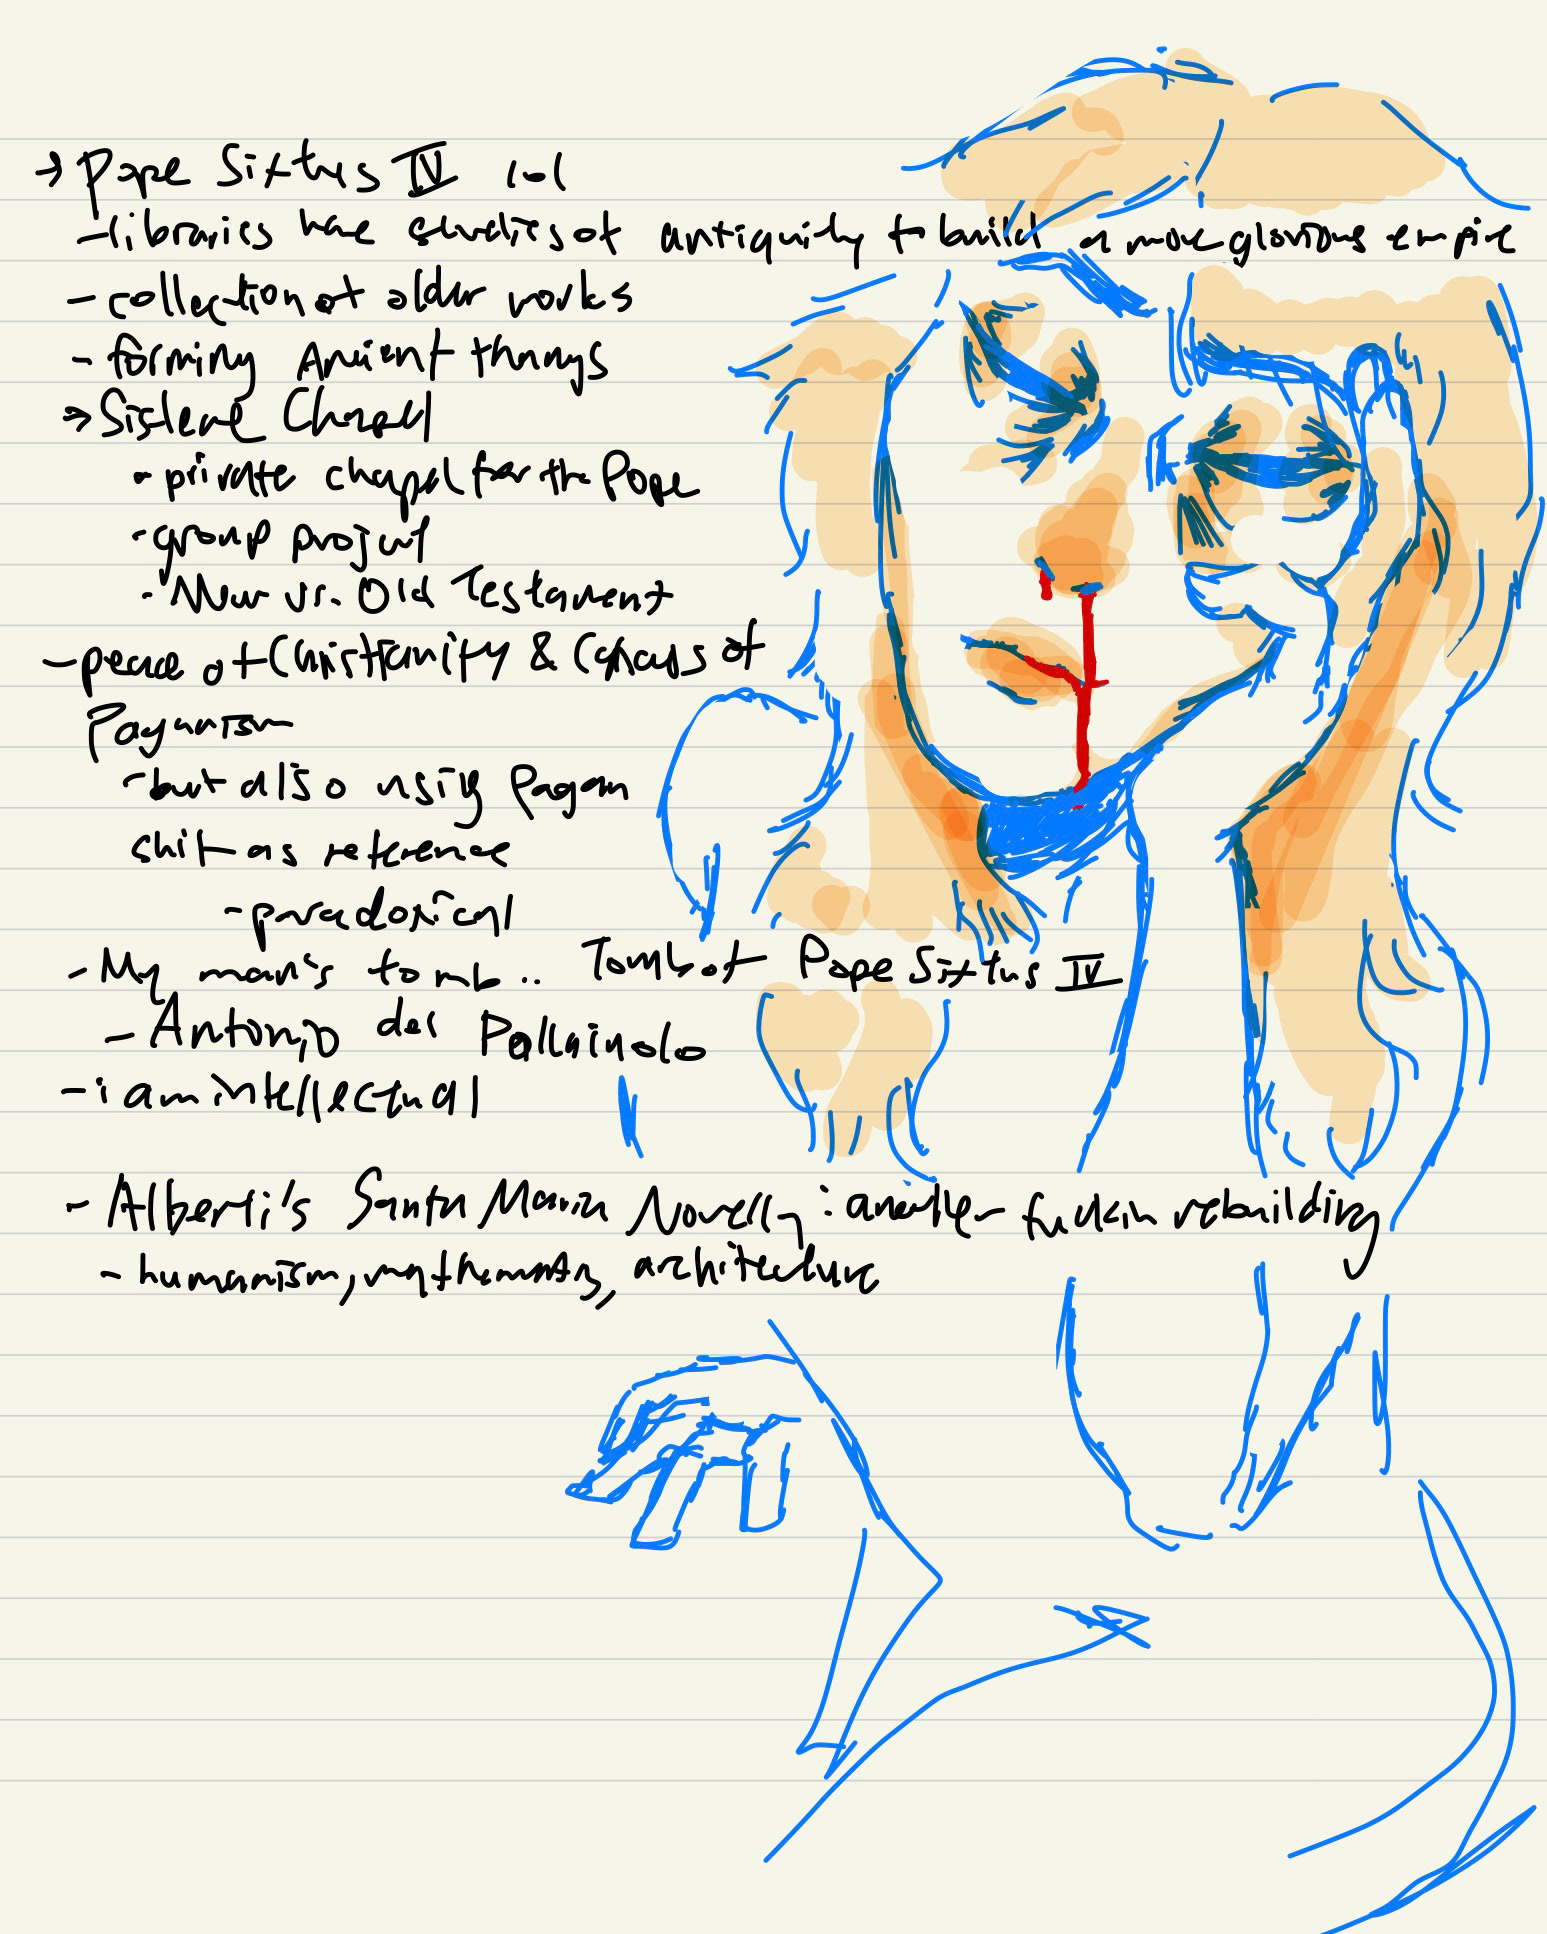 → Pope Sixtus IV lol
- libraries have studies of antiquity to build a more glorious empire
- collection of older works
- forming Ancient things
→ Sistene Chapel
- private chapel for the Pope
- group project
- New vs. Old Testament
- peace of Christianity & of
Paganism
- but also using Pagan
shit as reference
- paradoxical
- My man's tomb.. Tomb of Pope Sixtus IV
- Antonio del Pollaiuolo
- i am intellectual
- Alberti's Santa Maria Novella: another fuckin rebuilding
- humanism, mathematics, architecture